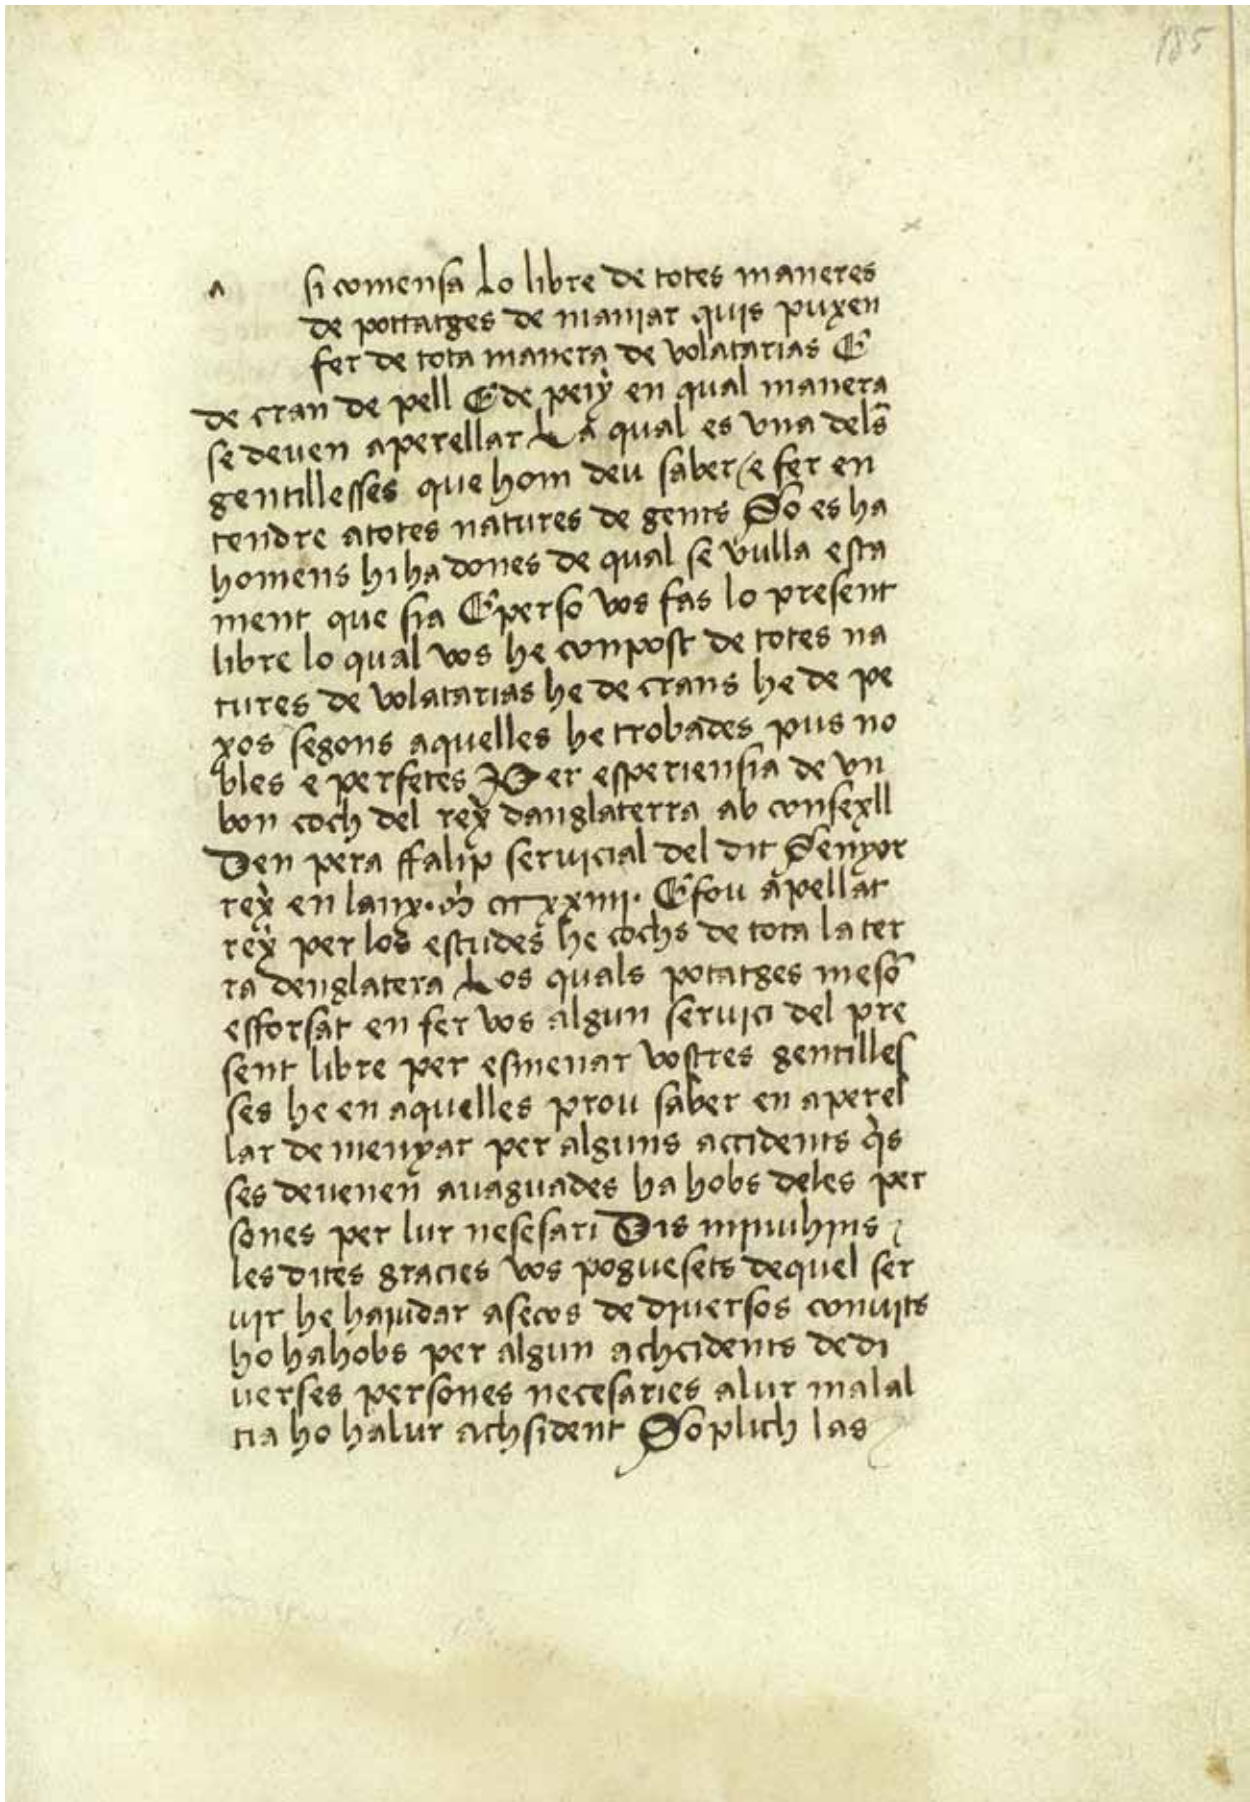 185
a si comensa Lo libre de totes maneres
de pottatges de maniar quis puxen
fer de tota manera de volatarias E
de cran de pell E de peix en qual manera
se deuen aperellar La qual es vna dels
gentillesses que hom deu saber / e fer en
tendre atotes natures de gents So es ha
homens hi ha dones de qual se vulla esta
ment que sia E perso vos fas lo present
libre lo qual vos he conpost de totes na
tures de volatarias he de crans he de pe
xos segons aquelles he trobades pus no
bles e perfetes Per esperiensia de vn
bon coch del rey danglaterra ab consexll
Den pera ffalip seruicial del dit Senyor
rey en lanx . M CCC xxiiii . E fou apellat
rey per los escudes he cochs de tota la ter
ra denglatera Los quals potatges meso
efforsat en fer vos algun seruici del pre
sent libre per esmenar vostres gentilles
ses he en aquelles prou saber en aperel
lar de menyar per alguns accidents q̀s
ses deuenen auaguades ha hobs deles per
sones per lur nesesari Dis
les dites gracies vos poguesets dequel ser
uir he haiudar asecos de diuersos conuits
ho hahobs per algun achcidents de di
uerses persones necesaries alur malal
tia ho halur achsident Soplich las